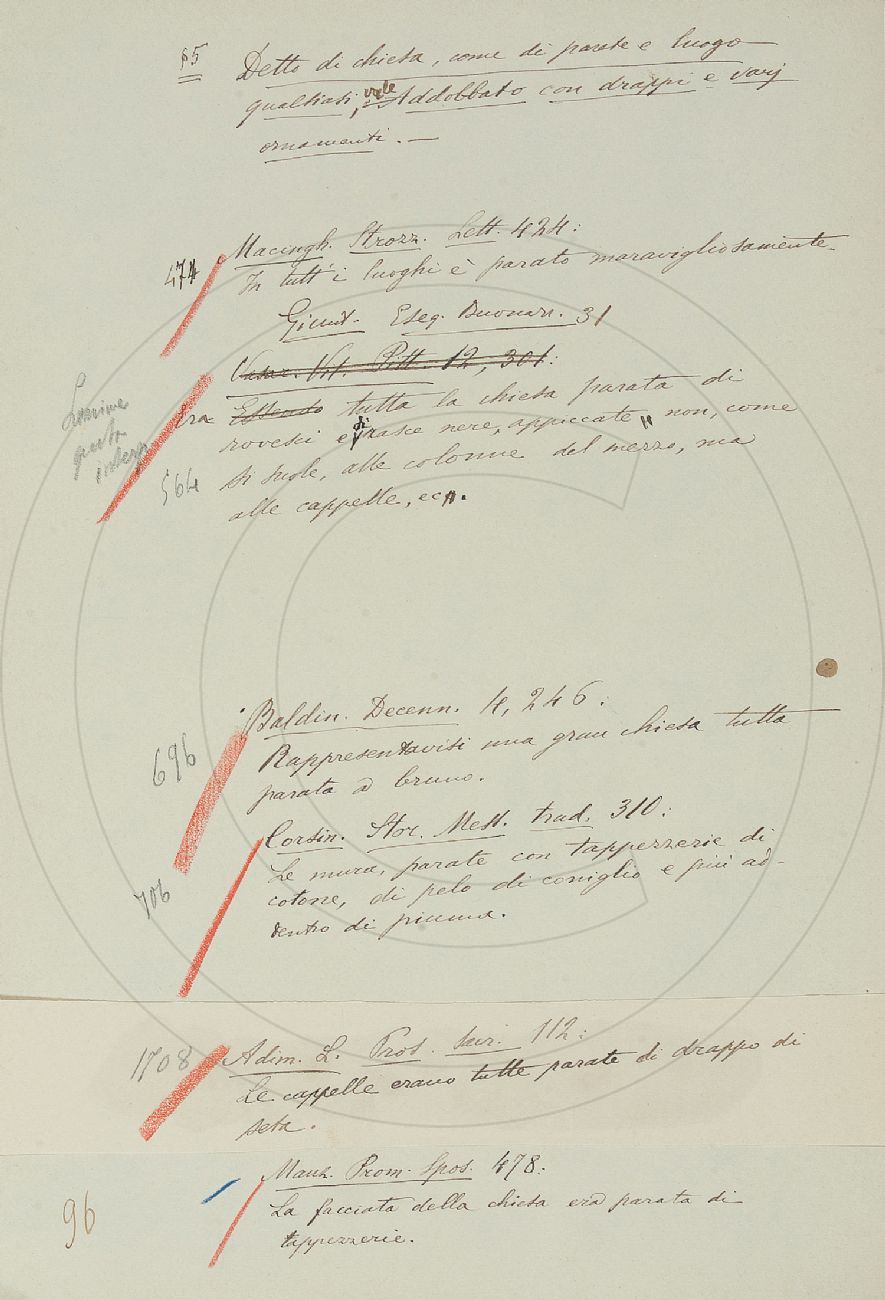 §5
Detto di chiesa, come di parate e luogo
qualsiasi, vale Addobbato con drappi e varj
ornamenti. —
Macingh. Strozz. Lett. 424:
474
In tutt' i luoghi è parato maravigliosamente.
Giunt. Eseq. Buonarr. 31
Vasar. Vit. Pitt. 12, 301:
Era Essendo tutta la chiesa parata di
rovesci e di rasce nere, appiccate „ non, come
si suole, alle colonne del mezzo, ma
564
alle cappelle, ec„.
Baldin. Decenn. 4, 246:
696
Rappresentavisi una gran chiesa tutta
parata a bruno.
Corsin. Stor. Mess. trad. 310:
Le mura, parate con tapperzerie di
706
cotone, di pelo di coniglio e più ad-
dentro di piuma.
1708
Adim. L. Pros. sacr. 112:
Le cappelle erano tutte parate di drappo di
seta.
Manz. Prom. Spos. 478:
96
La facciata della chiesa era parata di
tappezzerie.